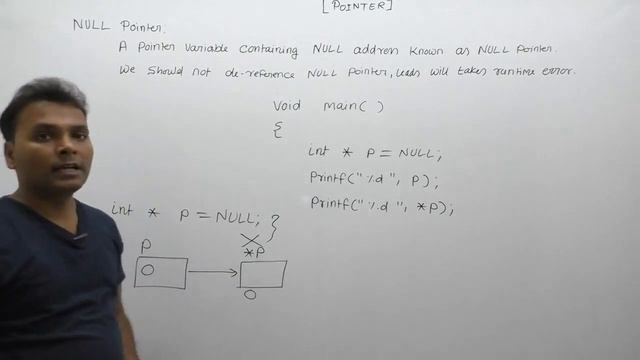 [POINTER]
NULL Pointer.
A pointer variable containing NULL address known as NULL pointer.
We should not de-reference NULL pointer, leads will takes runtime error.
Void main( )
{
int * P = NULL;
Printf("%d", P);
Printf("%d", *P);
int * P = NULL; }
P
*P
0
0